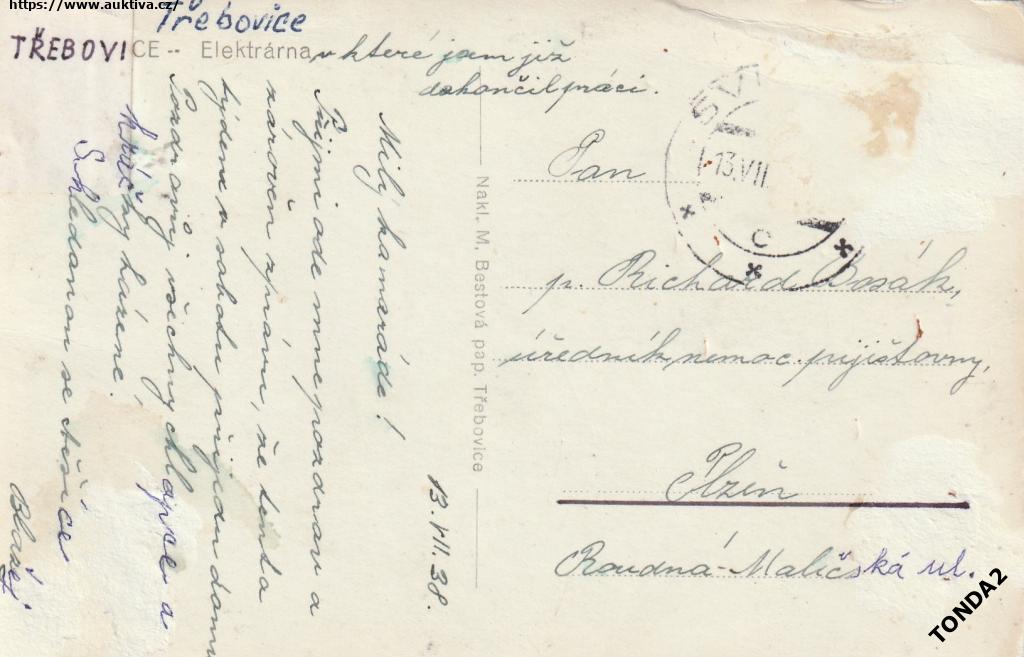 https://www.auktiva.cz/
Třebovice
TŘEBOVICE -- Elektrárna, v které jsem již
dokončil práci.
13.VII.38.
Milý kamaráde!
Přijmi ode mne pozdrav a
zároveň zprávu, že tento
týden v sobotu přijedu domů
Pozdravuj všechny chlapce a
kváčny lázně.
S hledanou se těšíce
Blažej.
Nakl. M. Bestová pap. Třebovice
SVI
13.VII.
C
Pan
p. Richard Bosák,
úředník nemoc. pojišťovny,
Plzeň
Roudná-Maličská ul.
TONDA2